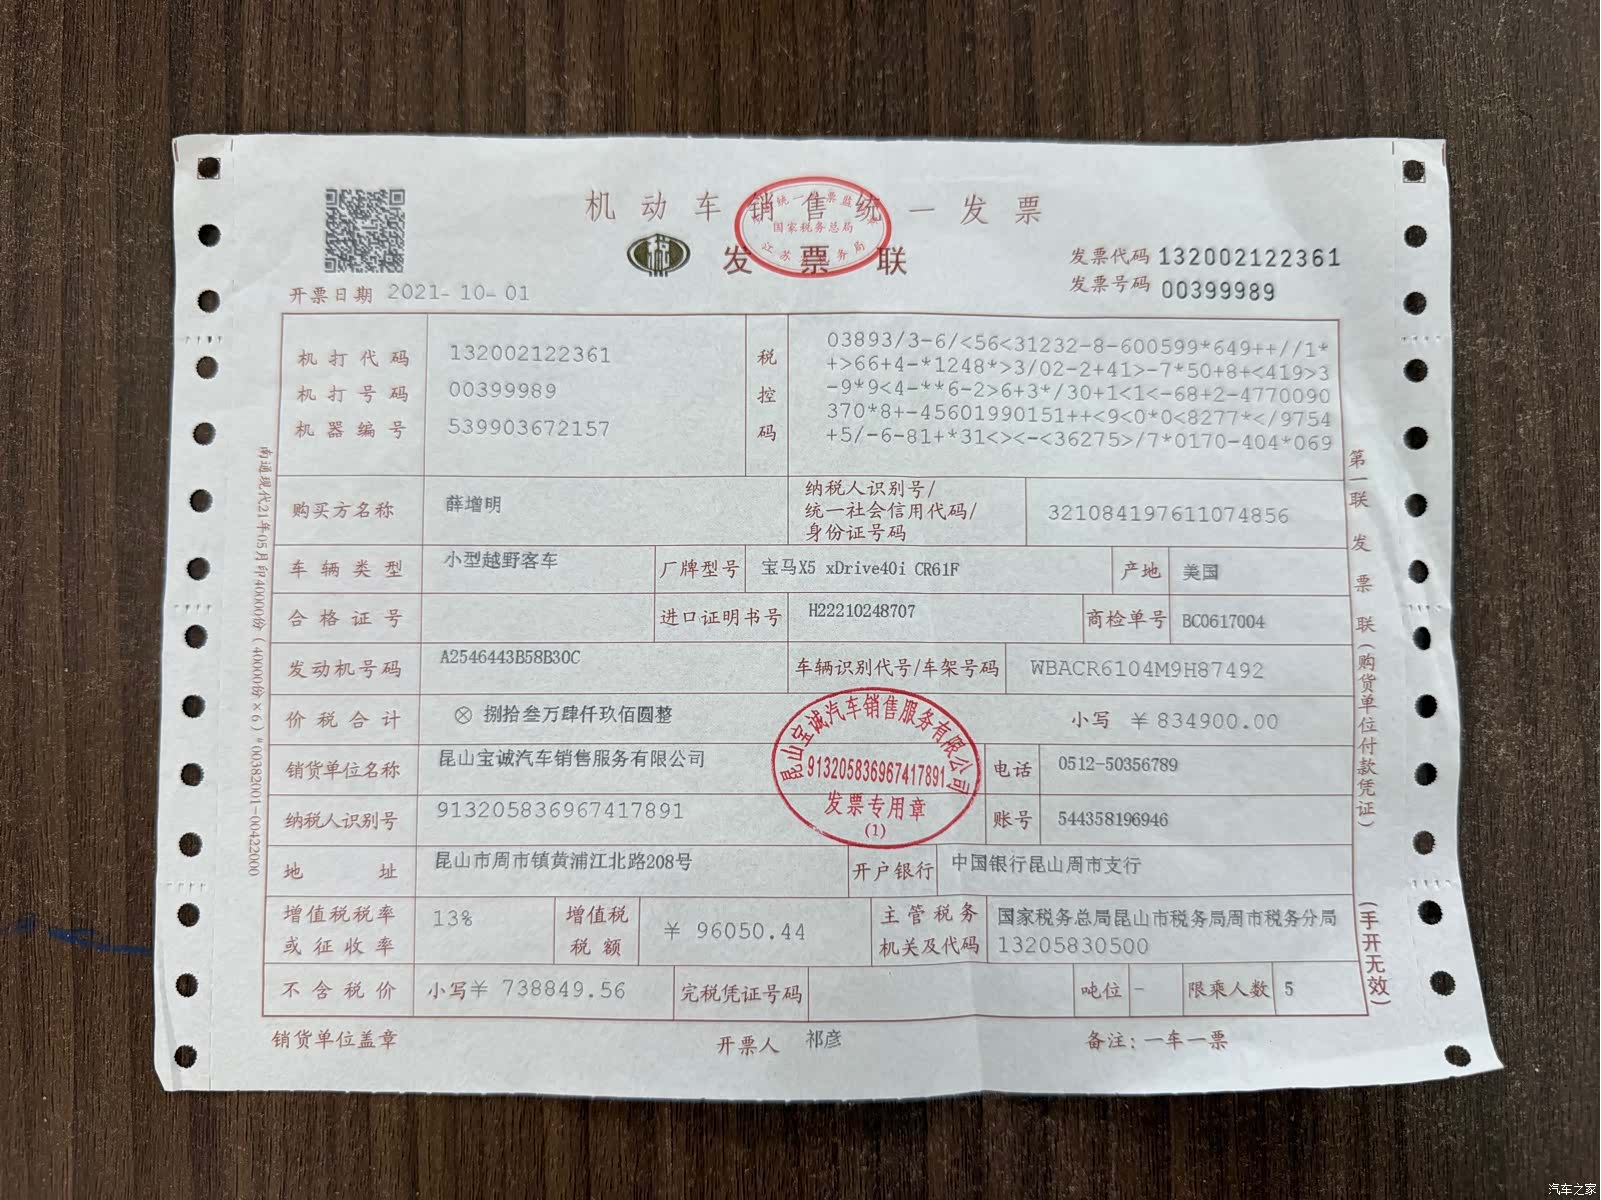 机动车销售统一发票
国家税务总局
发票联
发票代码 132002122361
发票号码 00399989
开票日期 2021-10-01
机打代码 132002122361
机打号码 00399989
机器编号 539903672157
税控码
03893/3-6/<56<31232-8-600599*649++//1*
+>66+4-*1248*>3/02-2+41>-7*50+8+<419>3
-9*9<4-**6-2>6+3*/30+1<1<-68+2-4770090
370*8+-45601990151++<9<0*0<8277*</9754
+5/-6-81+*31<><-<36275>/7*0170-404*069
购买方名称 薛增明
纳税人识别号/
统一社会信用代码/
身份证号码
321084197611074856
车辆类型 小型越野客车 厂牌型号 宝马X5 xDrive40i CR61F 产地 美国
合格证号 进口证明书号 H22210248707 商检单号 BC0617004
发动机号码 A2546443B58B30C 车辆识别代号/车架号码 WBACR6104M9H87492
价税合计 ⊗ 捌拾叁万肆仟玖佰圆整 小写 ¥834900.00
销货单位名称 昆山宝诚汽车销售服务有限公司 电话 0512-50356789
纳税人识别号 913205836967417891 账号 544358196946
地址 昆山市周市镇黄浦江北路208号 开户银行 中国银行昆山周市支行
增值税税率
或征收率
13%
增值税
税额
¥ 96050.44
主管税务
机关及代码
国家税务总局昆山市税务局周市税务分局
13205830500
不含税价 小写¥ 738849.56 完税凭证号码 吨位 - 限乘人数 5
销货单位盖章 开票人 祁彦 备注:一车一票
昆山宝诚汽车销售服务有限公司
913205836967417891
发票专用章
(1)
第一联 发票联(购货单位付款凭证)
(手开无效)
南通现代21年05月印40000份(40000份×6)*00382001-00422000
汽车之家